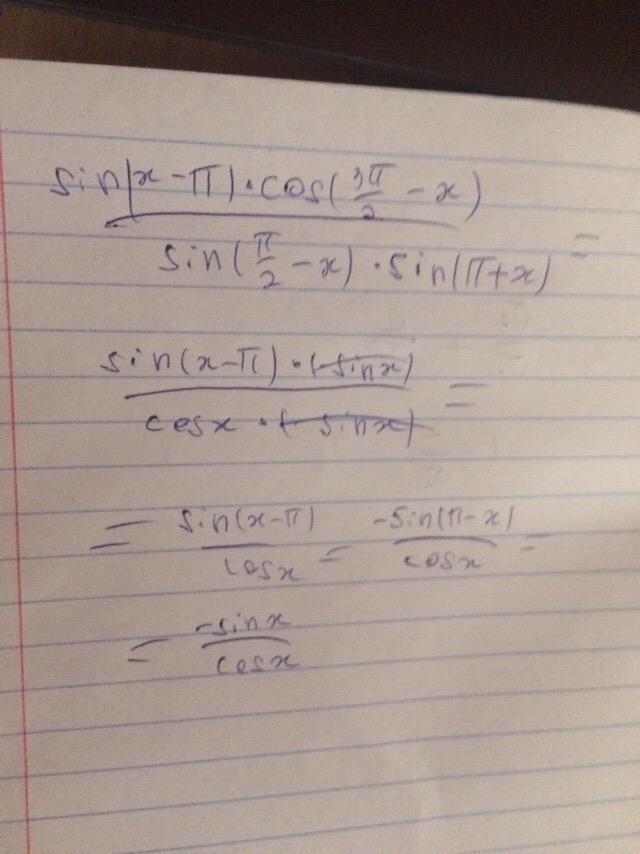 sin(x-π)·cos(3π/2-x)
sin(π/2-x)·sin(π+x) =
sin(x-π)·(-sinx)
cosx·(-sinx) =
= sin(x-π)/cosx = -sin(π-x)/cosx =
= -sinx/cosx